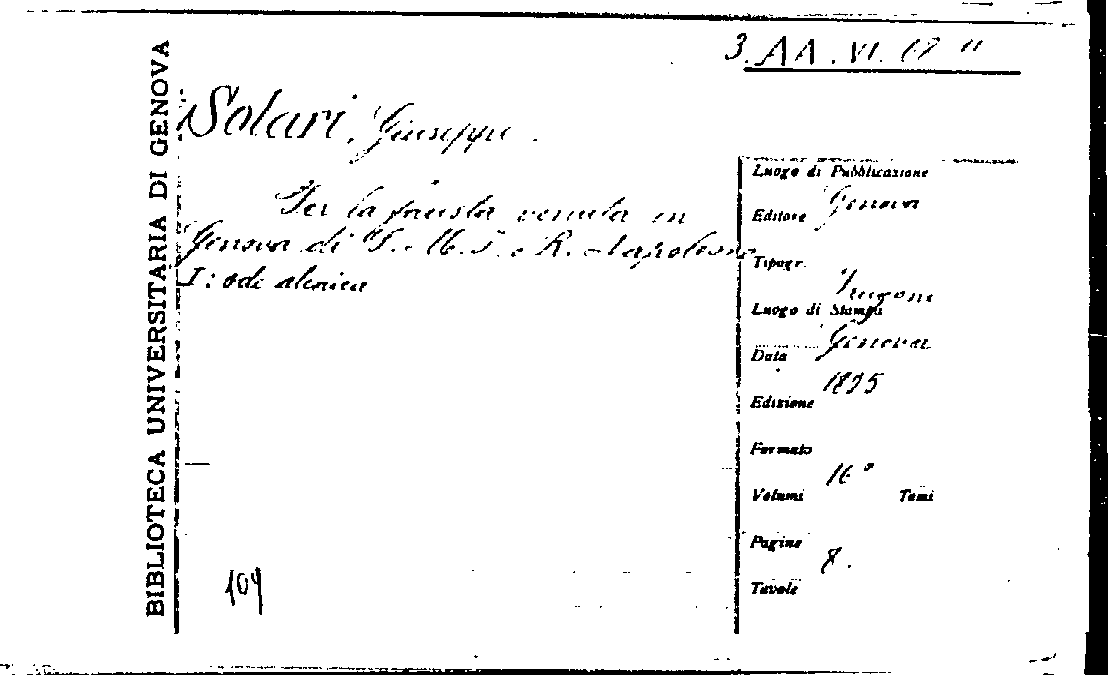 3. AA. VI. 17 11
BIBLIOTECA UNIVERSITARIA DI GENOVA
Solari, Giuseppe.
Per la fausta venuta in
Genova di S. M. I. e R. Napoleone
I: ode alcaica
109
Luogo di Pubblicazione
Genova
Editore
Tipogr.
Frugoni
Luogo di Stampa
Genova
Data
Edizione
Formato
16°
Volumi Tomi
Pagine
8.
Tavole